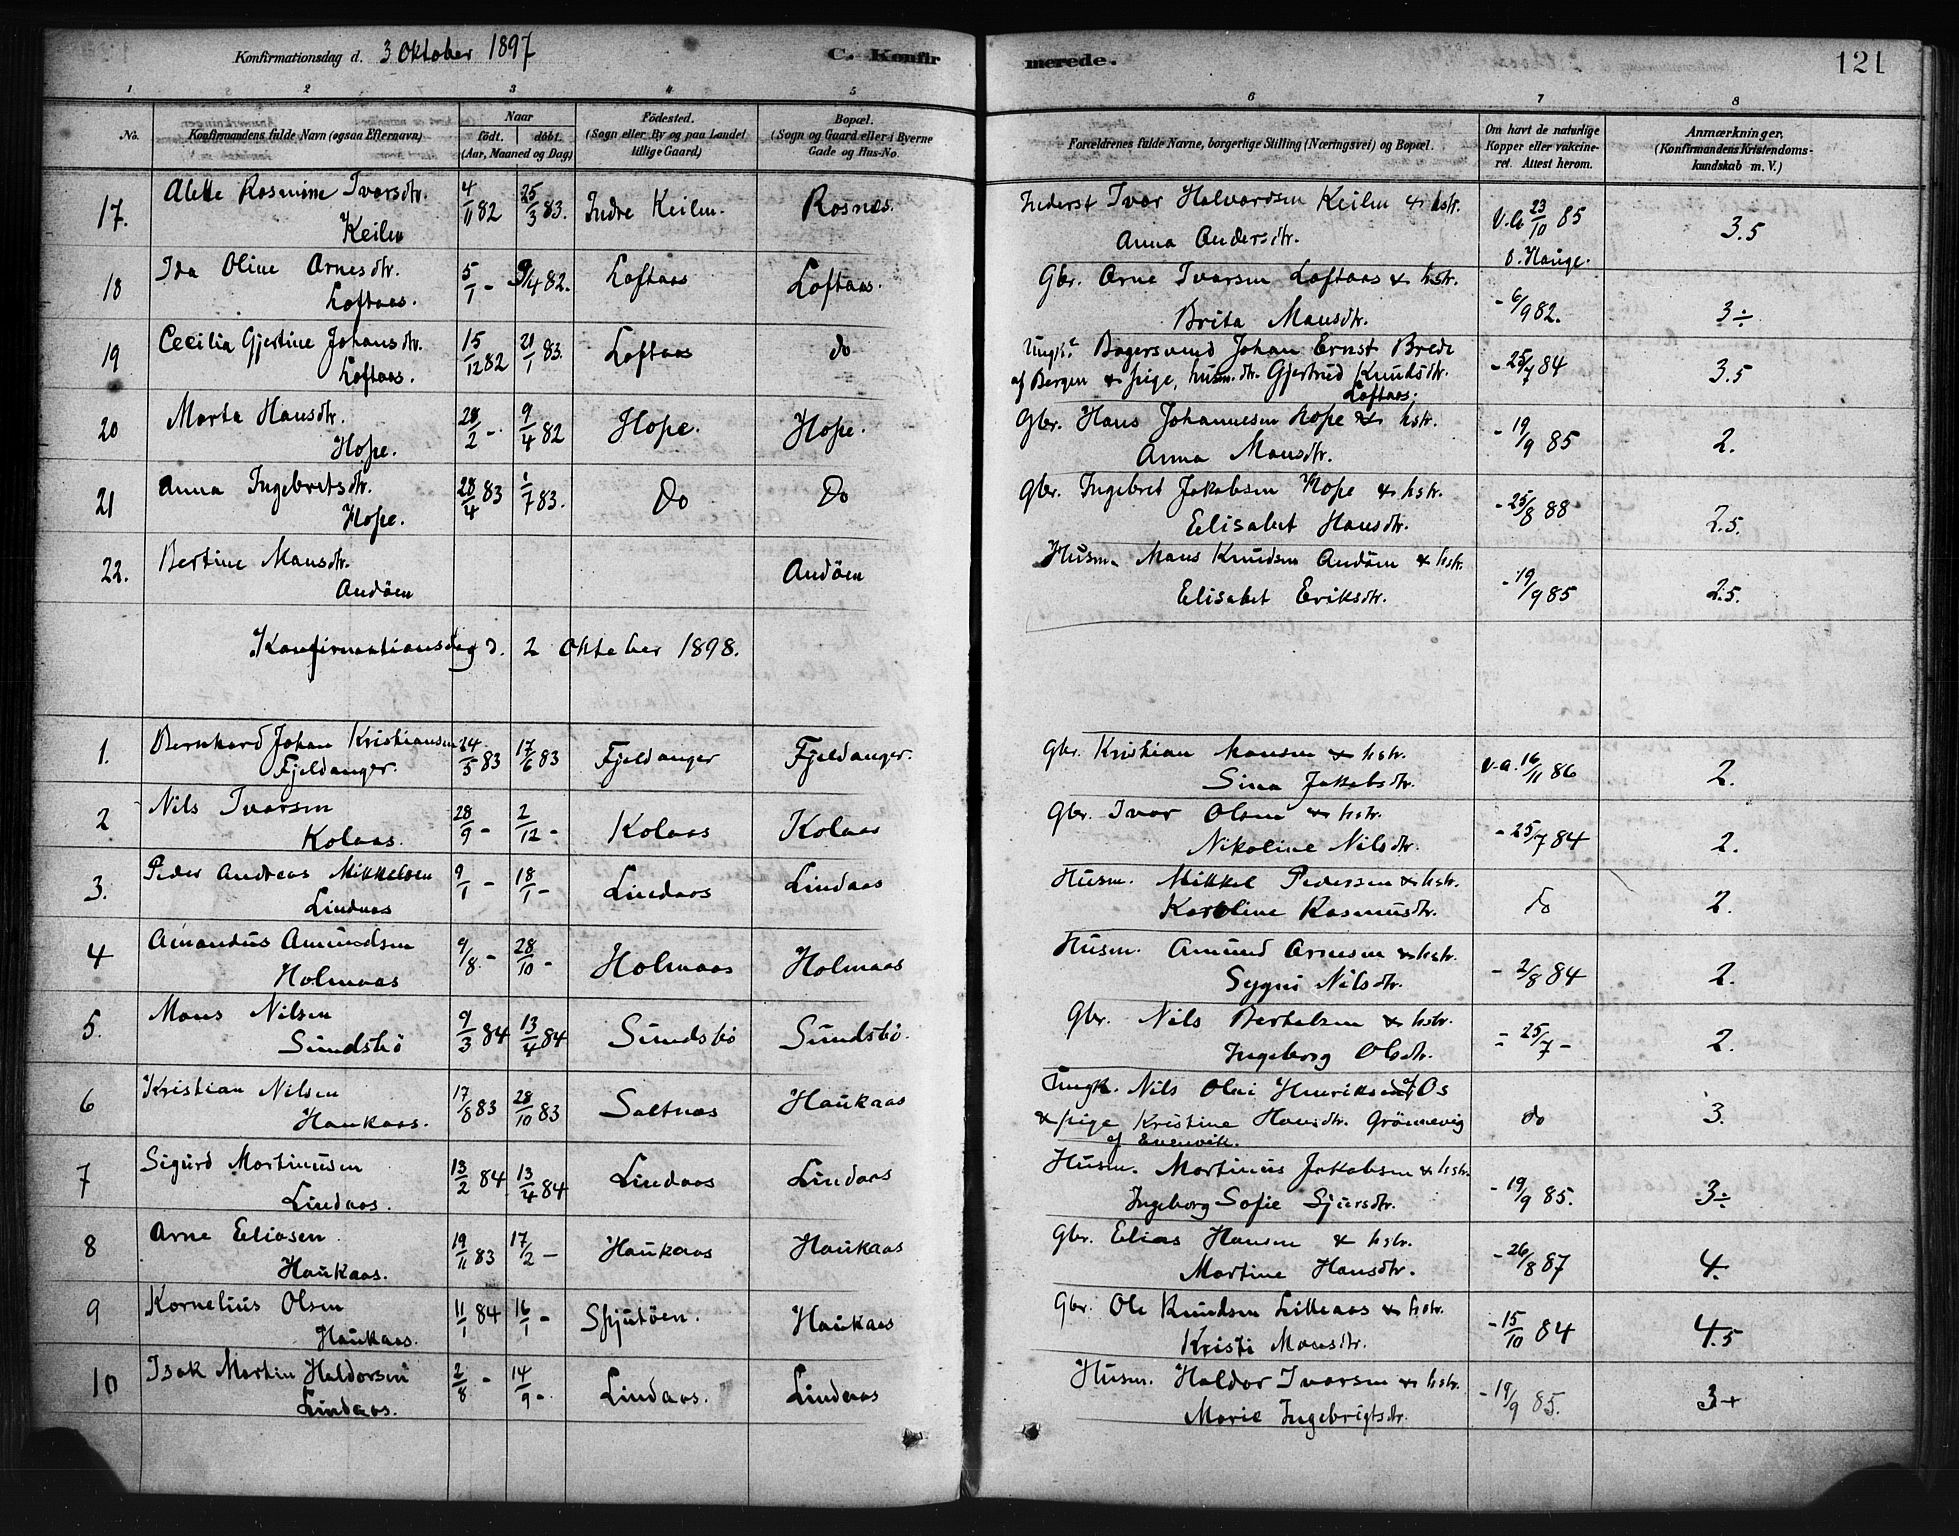 Konfirmationsdag d. 3 Oktober 1897
C. Konfirmerede.
121
1 2 3 4 5 6 7 8
No.
Konfirmandens fulde Navn (ogsaa Efternavn)
Naar
födt. döbt.
(Aar, Maaned og Dag)
Födested.
(Sogn eller By og paa Landet
tillige Gaard)
Bopæl.
(Sogn og Gaard eller i Byerne
Gade og Hus-No.
Forældrenes fulde Navne, borgerlige Stilling (Næringsvei) og Bopæl.
Om havt de naturlige
Kopper eller vakcine-
ret. Attest herom.
Anmærkninger,
(Konfirmandens Kristendoms-
kundskab m. V.)
17. Alette Rasmine Ivarsdtr. Keilen 4/11 82 25/3 83. Indre Keilen. Rosnes. Inderst Ivar Halvardsen Keilen & hstr. Anna Andersdtr. v.a. 23/10 85 3.5
18 Ida Oline Arnesdtr. Loftaas. 5/1 - 9/4 82. Loftaas Loftaas. Gbr. Arne Ivarsen Loftaas & hstr. Brita Mansdtr. - 6/9 82. 3÷
19 Cecilia Gjertine Johansdtr. Loftaas. 15/12 82 21/1 83. Loftaas do Ungk. Bagersvend Johan Ernst Brede af Bergen & pige, husm.dtr. Gjertrud Knudsdtr. Loftaas. - 25/7 84 3.5
20 Marta Hansdtr. Hope. 28/2 - 9/4 82 Hope. Hope. Gbr. Hans Johannesen Hope & hstr. Anna Mansdtr. - 19/9 85 2.
21 Anna Ingebretsdtr. Hope. 28/4 83 1/7 83. Do Do Gbr. Ingebret Jakobsen Hope & hstr. Elisabet Hansdtr. - 25/8 88 2.5
22. Bertine Mansdtr. Andöen Andöen Husm. Mans Knudsen Andöen & hstr. Elisabet Eriksdtr. - 19/9 85 2.5.
Konfirmationsdag d. 2 Oktober 1898.
1. Bernhard Johan Kristiansen Fjeldanger. 24/5 83 17/6 83 Fjeldanger Fjeldanger. Gbr. Kristian Mansen & hstr. Sina Jakobsdtr. v.a. 16/11 86 2.
2 Nils Ivarsen Kolaas. 28/9 - 2/12 - Kolaas Kolaas Gbr. Ivar Olsen & hstr. Nikoline Nilsdtr. - 25/7 84 2.
3. Peder Andreas Mikkelsen Lindaas 9/1 - 18/1 - Lindaas Lindaas Husm. Mikkel Pedersen & hstr. Karoline Rasmusdtr. do 2.
4 Amandus Amundsen Holmaas 9/8 - 28/10 - Holmaas Holmaas Husm. Amund Arnesen & hstr. Sygni Nilsdtr. - 2/8 84 2.
5. Mons Nilsen Sundsbö 9/3 84 13/4 84 Sundsbö Sundsbö. Gbr. Nils Bertelsen & hstr. Ingeborg Olsdtr. - 25/7 - 2.
6 Kristian Nilsen Haukaas. 17/8 83 28/10 83 Saltnes Haukaas Ungk. Nils Olai Henriksen af Os & pige Kristine Hansdtr. Grönnevig af Evenvik. do 3.
7 Sigurd Martinusen Lindaas. 13/2 84 13/4 84 Lindaas Lindaas Husm. Martinus Jakobsen & hstr. Ingeborg Sofie Sjursdtr. - 19/9 85. 3÷
8 Arne Eliasen Haukaas. 19/11 83 17/2 - Haukaas Haukaas Gbr. Elias Hansen & hstr. Martine Hansdtr. - 26/8 87 4.
9 Kornelius Olsen Haukaas. 11/1 84 16/1 - Spjutöen. Haukaas Gbr. Ole Knudsen Lilleaas & hstr. Kristi Monsdtr. - 15/10 84 4.5
10 Isak Martin Haldorsen Lindaas. 2/8 - 14/9 - Lindaas. Lindaas Husm. Haldor Ivarsen & hstr. Marie Ingebrigtsdtr. - 19/9 85. 3+